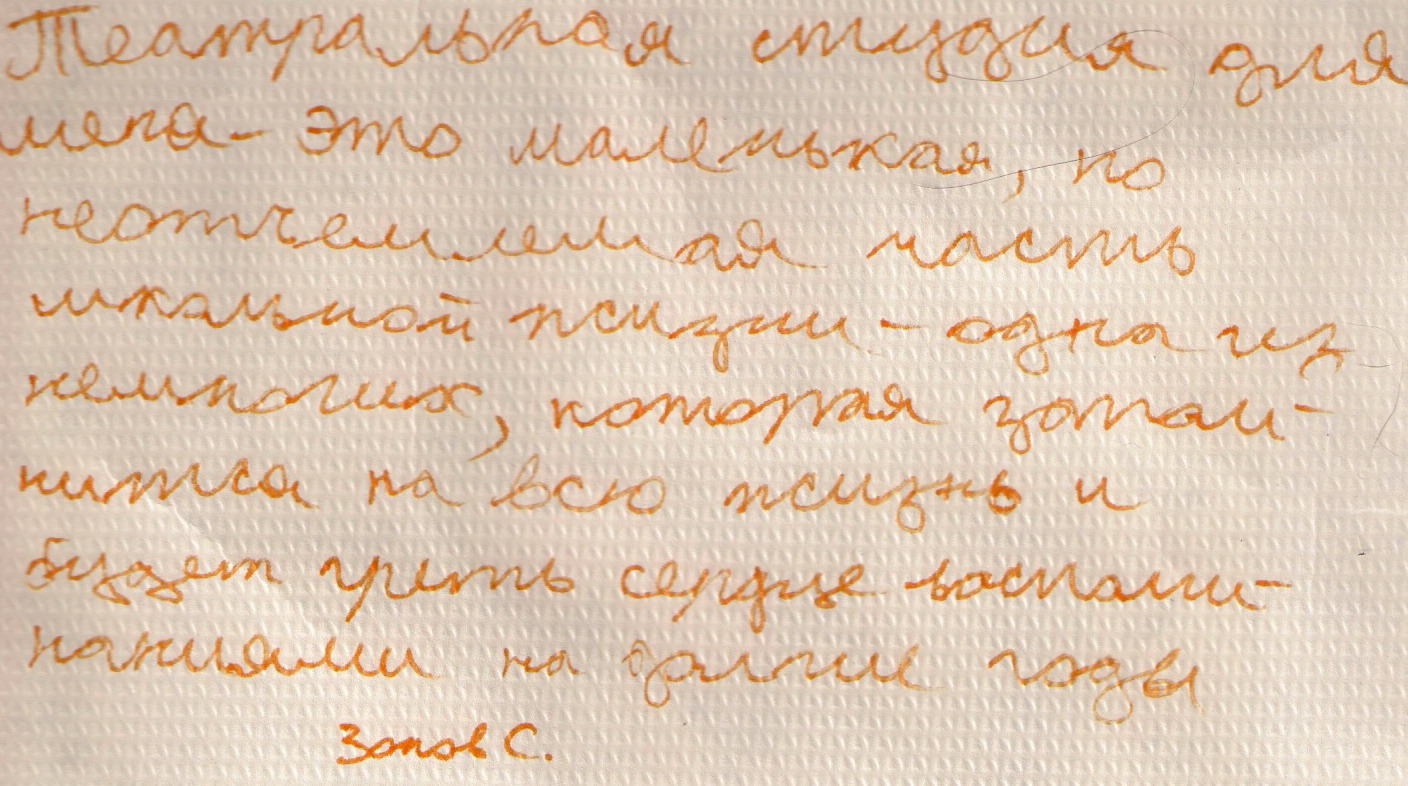 Театральная студия для
меня - это маленькая, но
неотъемлемая часть
школьной жизни - одна из
немногих, которая запом-
нится на всю жизнь и
будет греть сердце воспоми-
наниями на долгие годы
С.